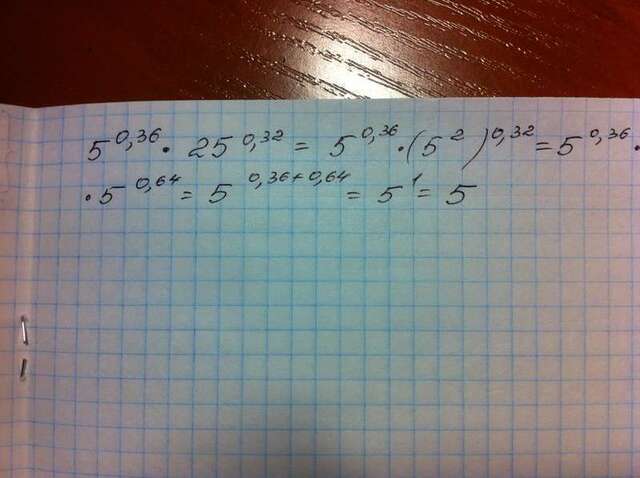 5^0,36 · 25^0,32 = 5^0,36 · (5^2)^0,32 = 5^0,36 ·
· 5^0,64 = 5^0,36+0,64 = 5^1 = 5